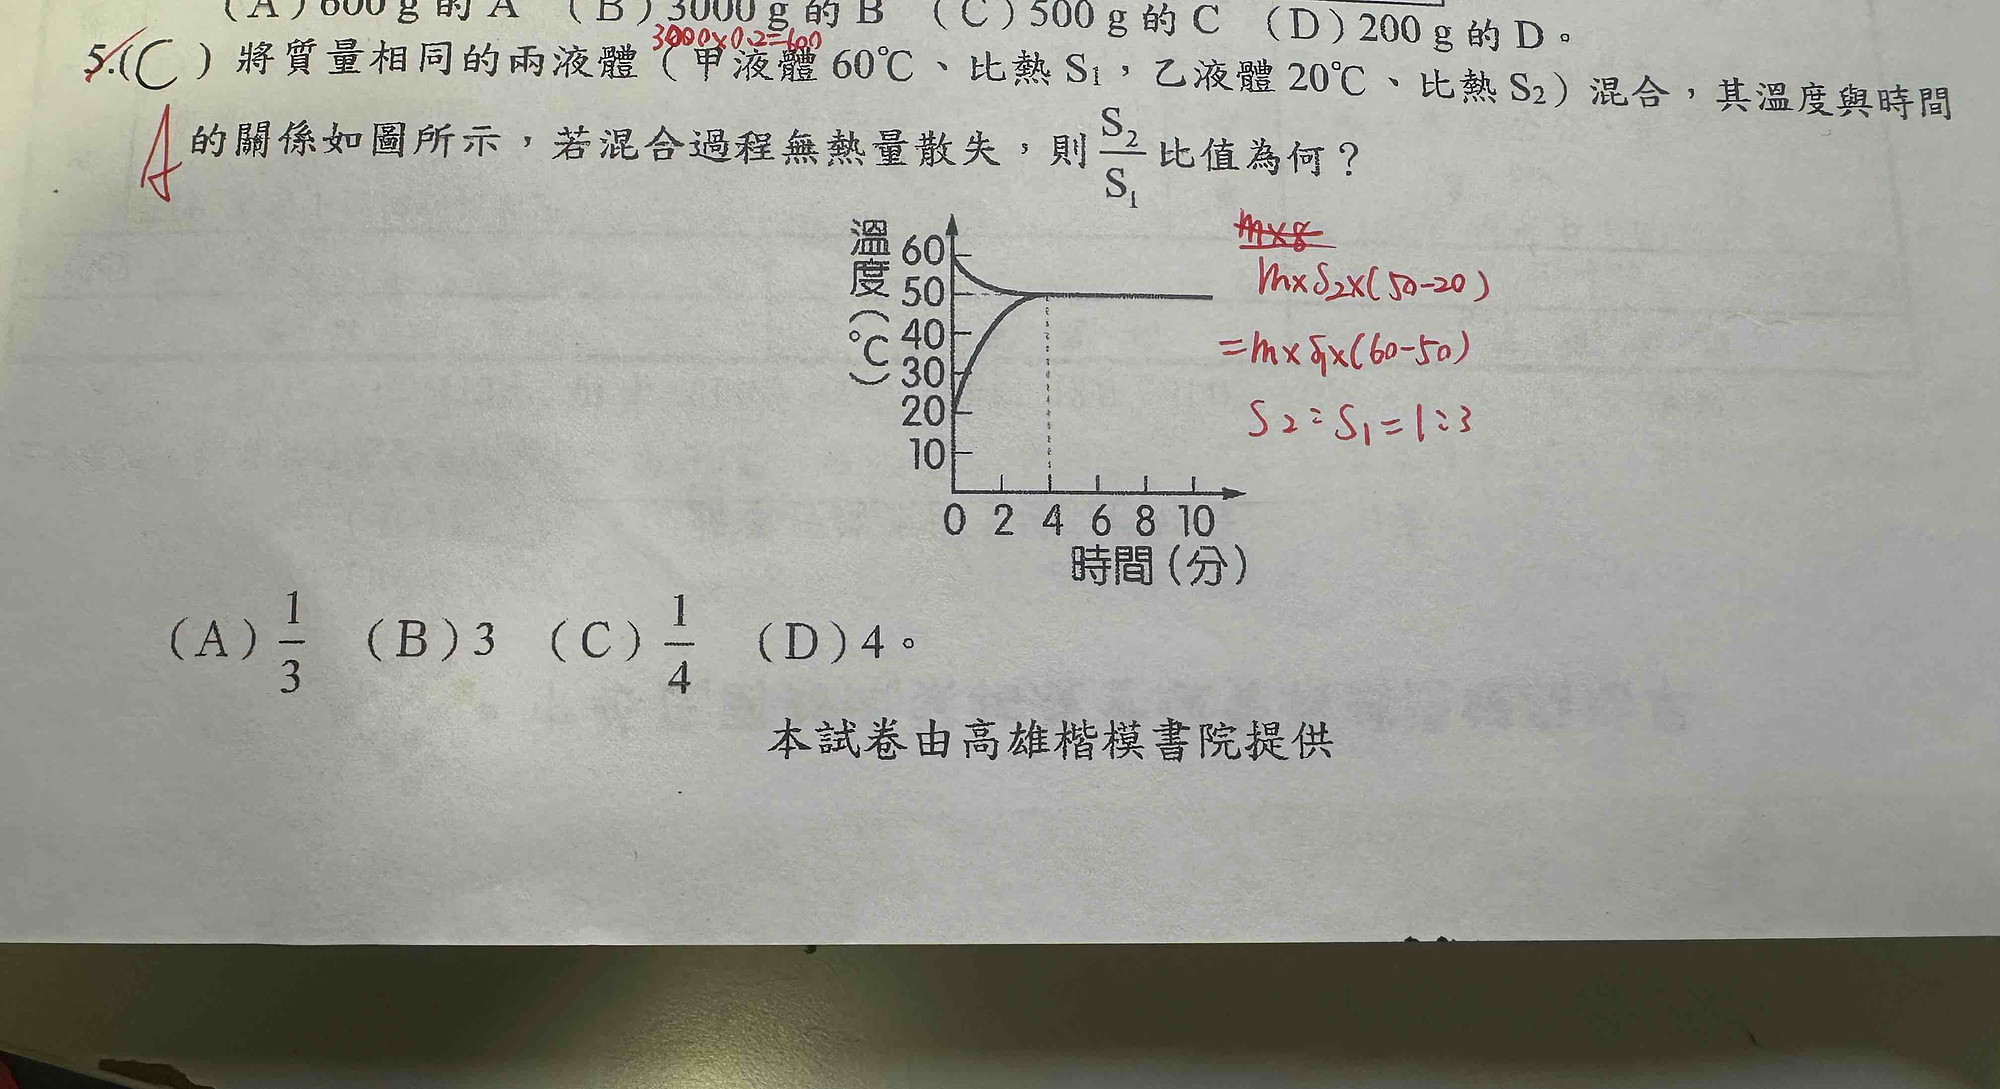 (A)600 g 的 A (B)3000 g 的 B (C)500 g 的 C (D)200 g 的 D。
3000×0.2=600
5.(C)將質量相同的兩液體(甲液體 60℃、比熱 S1,乙液體 20℃、比熱 S2)混合,其溫度與時間
A
的關係如圖所示,若混合過程無熱量散失,則 S2/S1 比值為何?
溫度(℃)
60
50
40
30
20
10
0 2 4 6 8 10
時間(分)
m×S2×(50-20)
=m×S1×(60-50)
S2:S1=1:3
(A)1/3 (B)3 (C)1/4 (D)4。
本試卷由高雄楷模書院提供